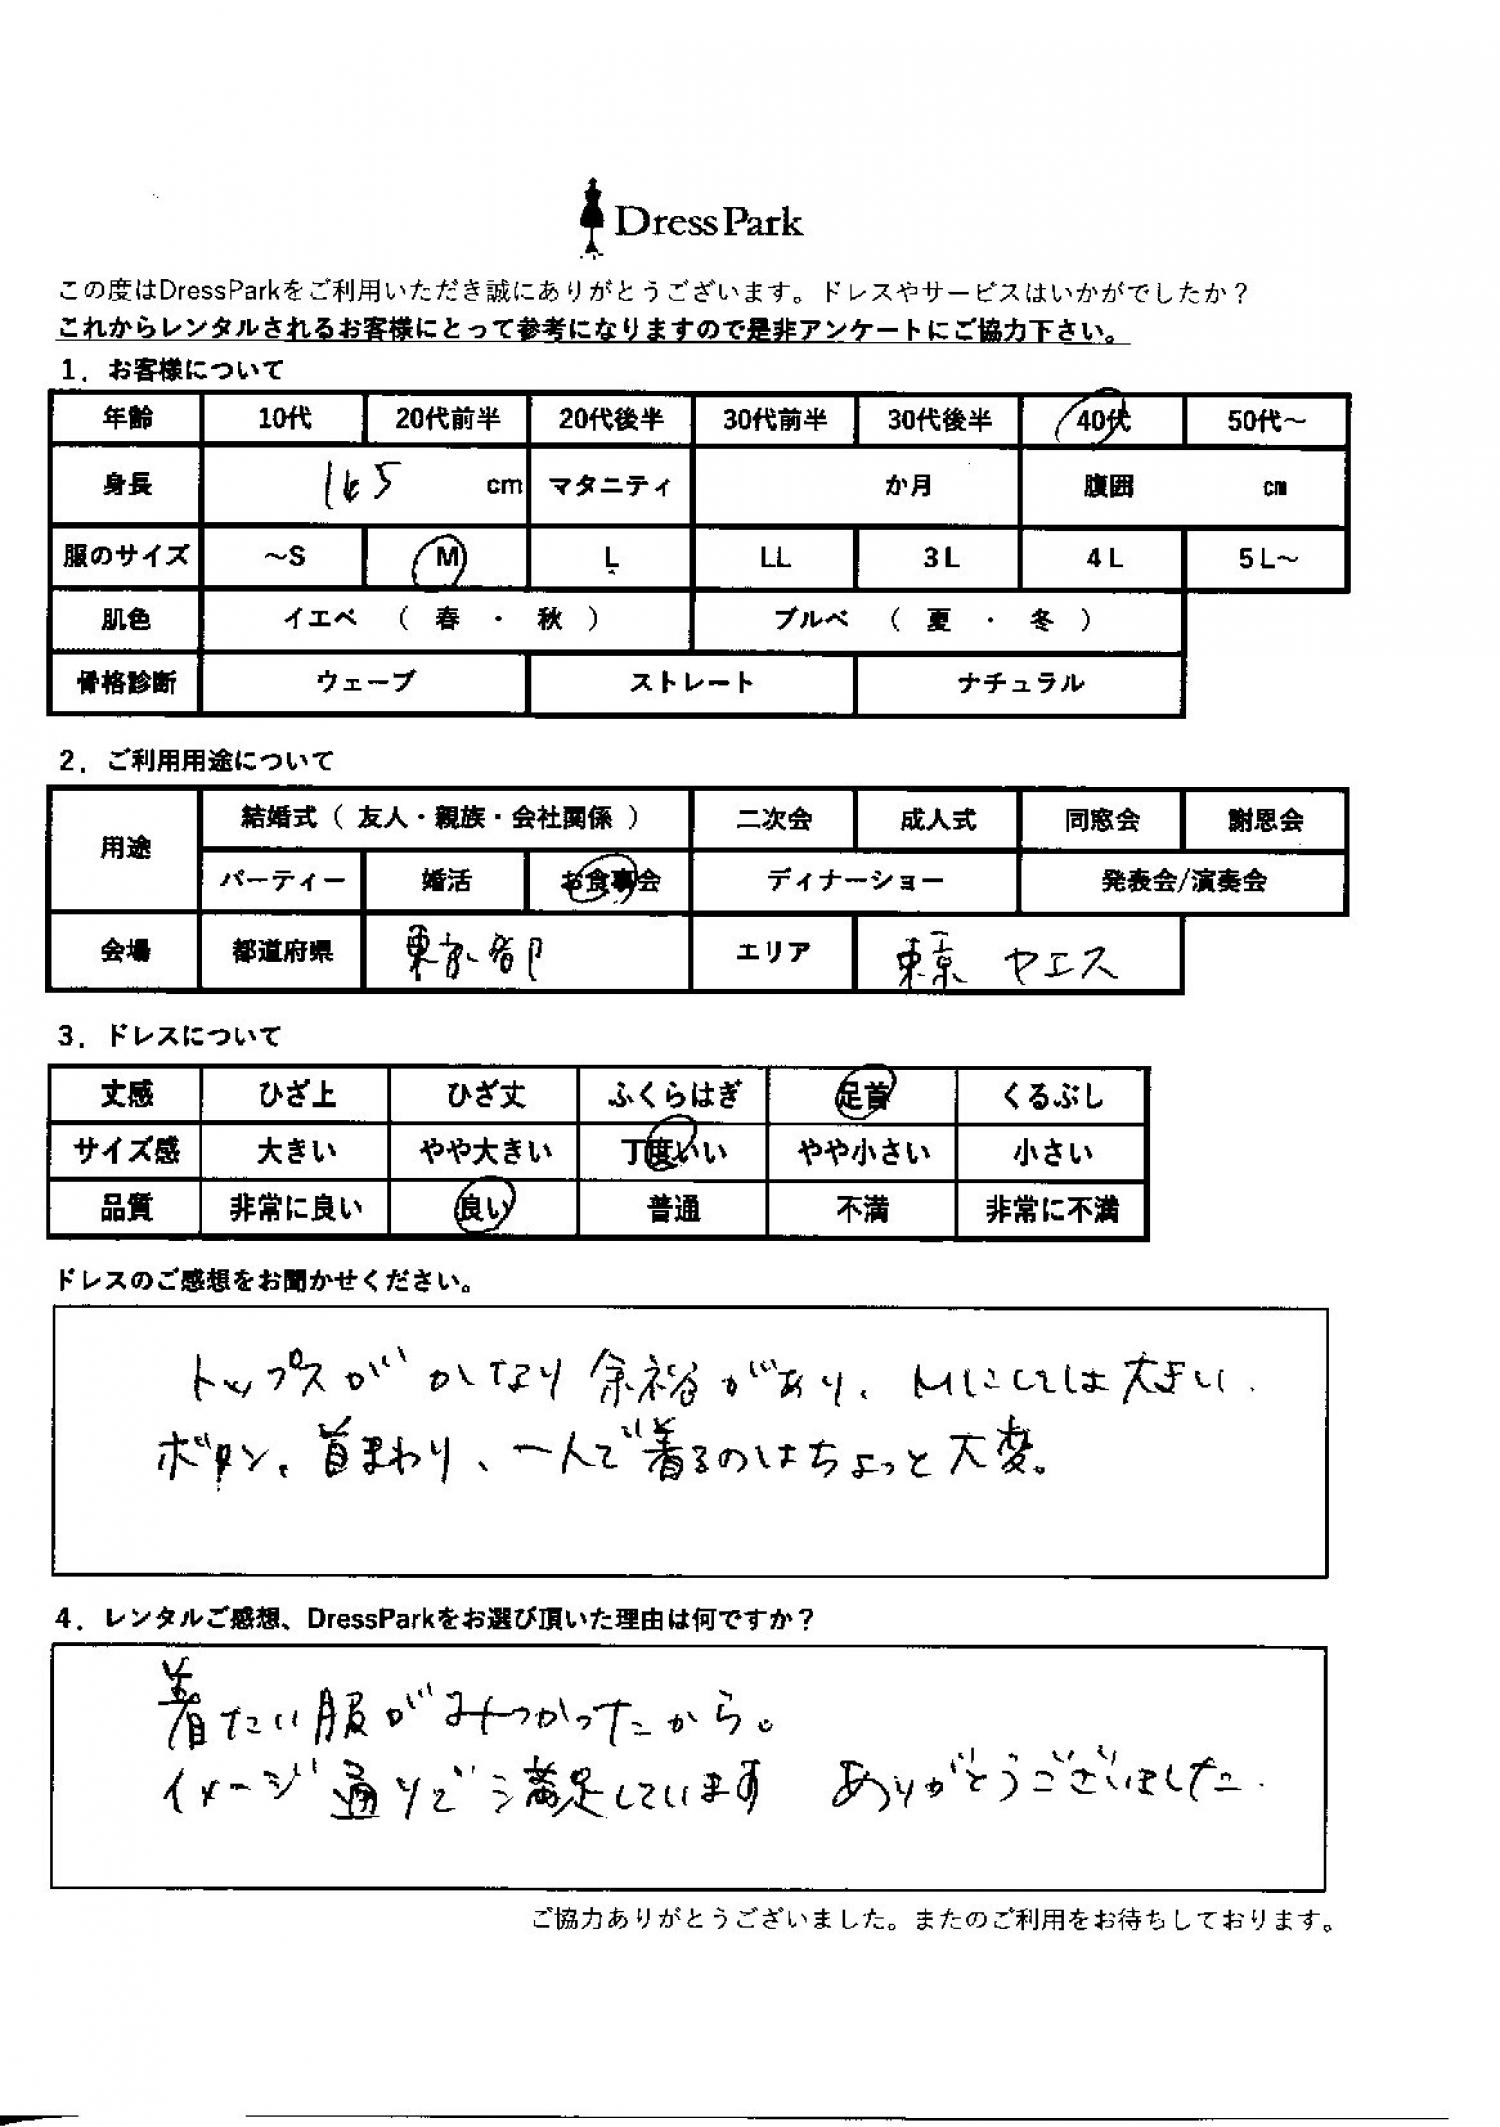 DressPark
この度はDressParkをご利用いただき誠にありがとうございます。ドレスやサービスはいかがでしたか？
これからレンタルされるお客様にとって参考になりますので是非アンケートにご協力下さい。
1．お客様について
年齢 10代 20代前半 20代後半 30代前半 30代後半 40代 50代～
身長 165 cm マタニティ か月 腹囲 cm
服のサイズ ～S M L LL 3L 4L 5L～
肌色 イエベ （ 春 ・ 秋 ） ブルベ （ 夏 ・ 冬 ）
骨格診断 ウェーブ ストレート ナチュラル
2．ご利用用途について
用途 結婚式（ 友人・親族・会社関係 ） 二次会 成人式 同窓会 謝恩会
パーティー 婚活 お食事会 ディナーショー 発表会/演奏会
会場 都道府県 東京都 エリア 東京 ヤエス
3．ドレスについて
丈感 ひざ上 ひざ丈 ふくらはぎ 足首 くるぶし
サイズ感 大きい やや大きい 丁度いい やや小さい 小さい
品質 非常に良い 良い 普通 不満 非常に不満
ドレスのご感想をお聞かせください。
トップスがかなり余裕があり、Mにしては大きい.
ボタン、首まわり、一人で着るのはちょっと大変。
4．レンタルご感想、DressParkをお選び頂いた理由は何ですか？
着たい服がみつかったから。
イメージ通りで満足しています ありがとうございました.
ご協力ありがとうございました。またのご利用をお待ちしております。